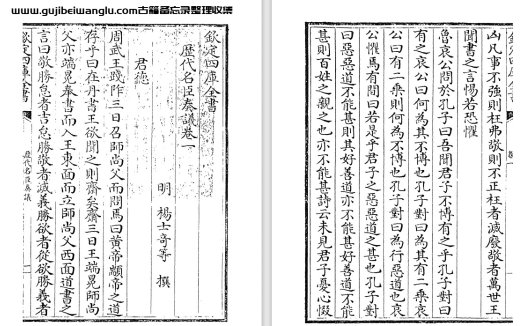 www.gujibeiwanglu.com古籍备忘录整理收集
欽定四庫全書
歷代名臣奏議卷一
明 楊士奇等 撰
君德
周武王踐阼三日召師尚父而問焉曰黄帝顓帝之道
存乎曰在丹書王欲聞之則齋矣齋三日王端冕師尚
父亦端冕奉書而入王東面而立師尚父西面道書之
言曰敬勝怠者吉怠勝敬者滅義勝欲者從欲勝義者
欽定四庫全書
歷代名臣奏議
凶凡事不強則枉弗敬則不正枉者滅廢敬者萬世王
聞書之言惕若恐懼
魯哀公問於孔子曰吾聞君子不博有之乎孔子對曰
有之哀公曰何為其不博也孔子對曰為其有二乗哀
公曰有二乗則何為不博也孔子對曰為行惡道也哀
公懼焉有間曰若是乎君子之惡惡道之甚也孔子對
曰惡惡道不能甚則其好善道亦不能甚好善道不能
甚則百姓之親之也亦不能甚詩云未見君子憂心惙